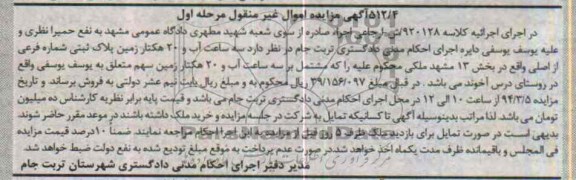 ۵۱۲/۴آگهی مزایده اموال غیر منقول مرحله اول
در اجرای اجرائیه کلاسه ۹۲۰۱۲۸/ش ا.ح مدنی اجراء صادره از سوی شعبه شهید مطهری دادگاه عمومی مشهد به نفع حمیرا نظری و
علیه یوسف یوسفی دایره اجرای احکام مدنی دادگستری تربت جام در نظر دارد سه ساعت آب و ۲۰ هکتار زمین پلاک ثبتی شماره فرعی
از اصلی واقع در بخش ۱۳ مشهد ملکی محکوم علیه را که مشتمل بر سه ساعت آب و ۲۰ هکتار زمین سهم متعلق به یوسف یوسفی واقع
در روستای درس آخوند می باشد . در قبال مبلغ ۳۹/۱۵۶/۰۹۷ ریال محکوم به و مبلغ ریال بابت نیم عشر دولتی به فروش برساند . و تاریخ
مزایده ۹۴/۳/۵ از ساعت ۱۰ الی ۱۲ در محل اجرای احکام مدنی دادگستری تربت جام می باشد و قیمت پایه برابر نظریه کارشناس ده میلیون
تومان می باشد. لذا مراتب بدینوسیله آگهی تا کسانیکه تمایل به شرکت در جلسه مزایده و خرید ملک داشته باشند در موعد مقرر حاضر شوند.
بدیهی است در صورت تمایل برای بازدید ملک ظرف ۵ روز قبل از مزایده به دفتر اجرا احکام مراجعه نمایند. ضمناً ۱۰درصد قیمت مزایده
فی المجلس و باقیمانده ظرف مدت یکماه اخذ خواهد شد در صورت عدم پرداخت به موقع مبلغ تودیع شده به نفع دولت ضبط خواهد شد.
مدیر دفتر اجرای احکام مدنی دادگستری شهرستان تربت جام